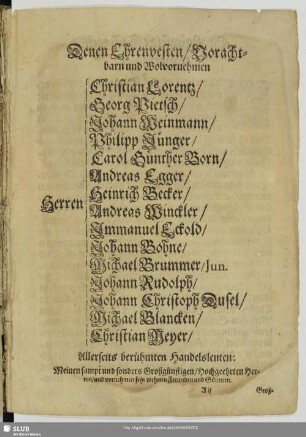 Denen Ehrenvesten/Voracht-
barn und Wolvornehmen
Christian Lorentz/
Georg Pietsch/
Johann Weinmann/
Philipp Jünger/
Carol Günther Born/
Andreas Egger/
Heinrich Becker/
Herren
Andreas Winckler/
Immanuel Eckold/
Johann Bohne/
Michael Brummer/Jun.
Johann Rudolph/
Johann Christoph Dusel/
Michael Blancken/
Christian Meyer/
Allerseits berühmten Handelsleuten:
Meinen sampt und sonders Großgünstigen/Hochgeehrten Her-
ren/und vornehmen sehr wehrten Freunden und Gönnern.
A ij
Groß-
SLUB
DRESDEN